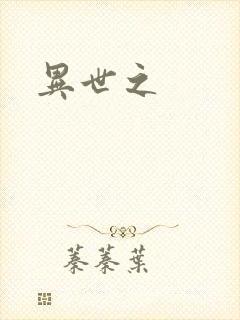 異世之
蓁蓁葉